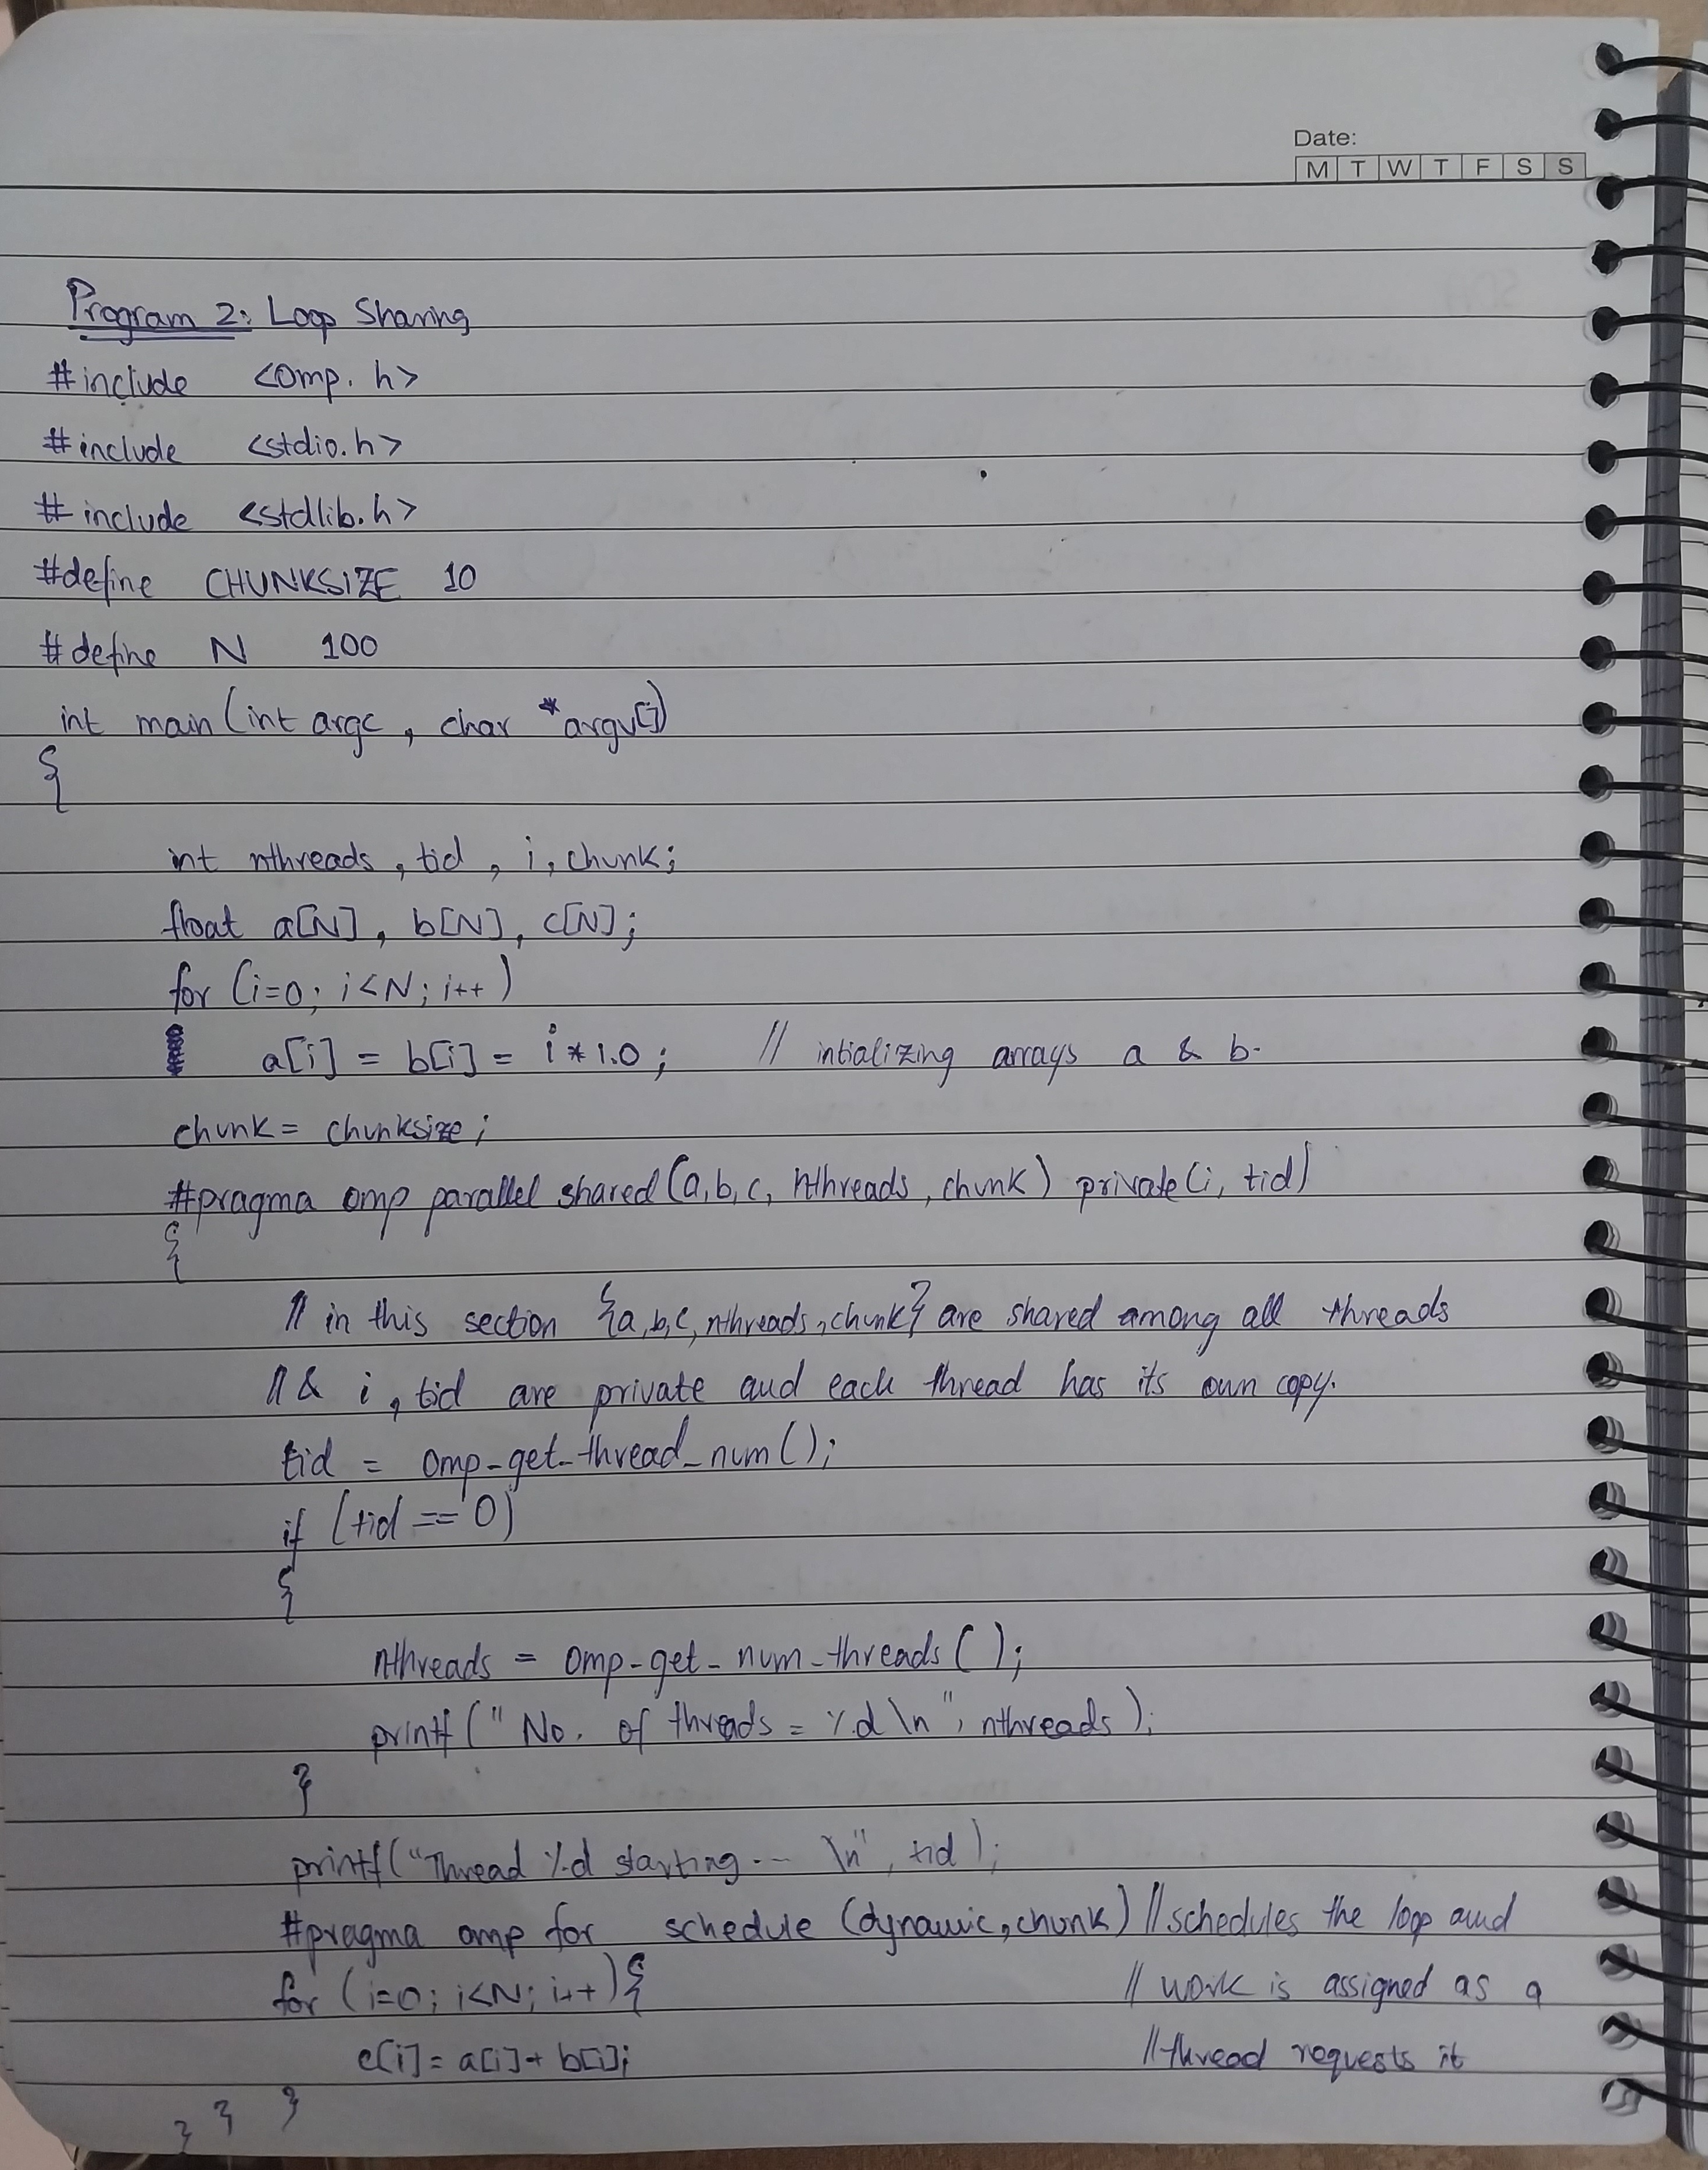 Date:
M T W T F S S
Program 2: Loop Sharing
#include <omp.h>
#include <stdio.h>
#include <stdlib.h>
#define CHUNKSIZE 10
#define N 100
int main (int argc, char *argv[])
{
int nthreads, tid, i, chunk;
float a[N], b[N], c[N];
for (i=0; i<N; i++)
a[i] = b[i] = i*1.0; // intializing arrays a & b.
chunk = chunksize;
#pragma omp parallel shared (a,b,c, nthreads, chunk) private (i, tid)
{
// in this section {a,b,c,nthreads,chunk} are shared among all threads
// & i, tid are private and each thread has its own copy.
tid = omp_get_thread_num();
if (tid == 0)
{
nthreads = omp_get_num_threads ( );
printf (" No. of threads = %d \n", nthreads );
}
printf("Thread %d starting... \n", tid );
#pragma omp for schedule (dynamic, chunk) // schedules the loop and
for (i=0; i<N; i++){ // work is assigned as a
c[i] = a[i]+ b[i]; // thread requests it
} } }